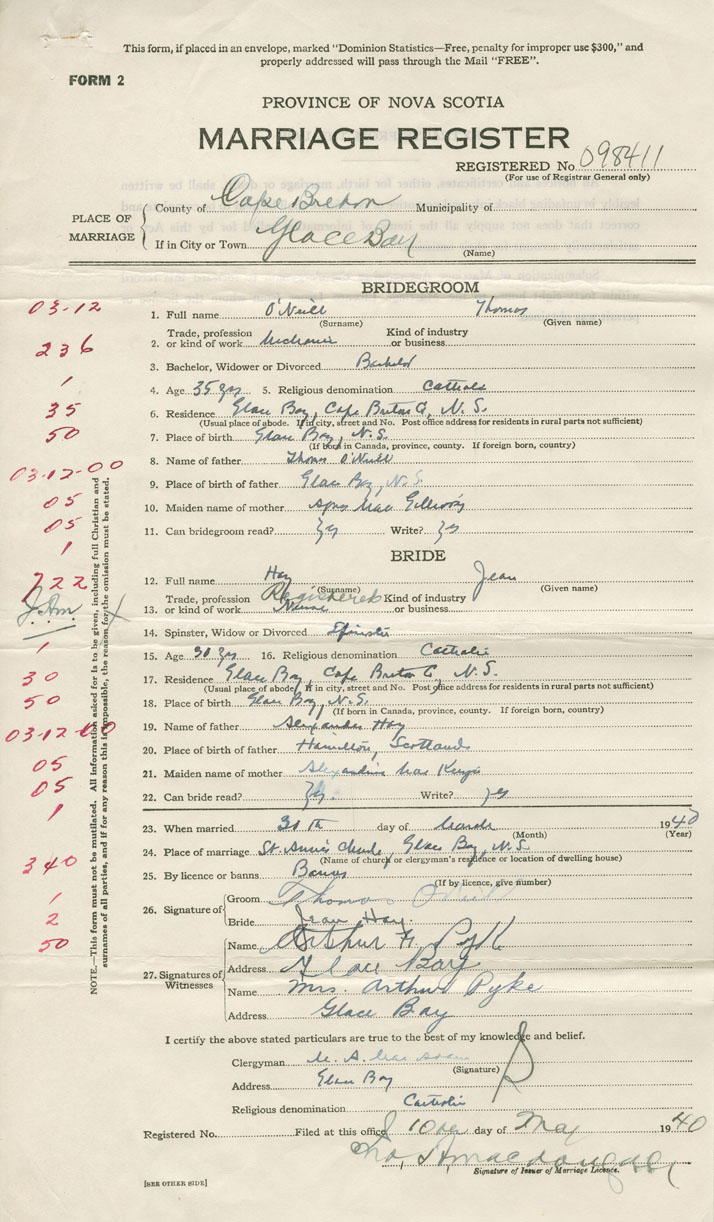 This form, if placed in an envelope, marked "Dominion Statistics—Free, penalty for improper use $300," and
properly addressed will pass through the Mail "FREE".
FORM 2
PROVINCE OF NOVA SCOTIA
MARRIAGE REGISTER
REGISTERED No. 098411
(For use of Registrar General only)
PLACE OF MARRIAGE
County of Cape Breton Municipality of
If in City or Town Glace Bay
(Name)
BRIDEGROOM
03-12
1. Full name O'Neill Thomas
(Surname) (Given name)
236
2. Trade, profession or kind of work Mechanic Kind of industry or business
3. Bachelor, Widower or Divorced Bachelor
1
4. Age 35 yrs 5. Religious denomination Catholic
35
6. Residence Glace Bay, Cape Breton Co, N.S.
(Usual place of abode. If in city, street and No. Post office address for residents in rural parts not sufficient)
50
7. Place of birth Glace Bay, N.S.
(If born in Canada, province, county. If foreign born, country)
03-12-00
8. Name of father Thomas O'Neill
9. Place of birth of father Glace Bay, N.S.
05
10. Maiden name of mother Mac
05
11. Can bridegroom read? Yes Write? Yes
1
BRIDE
722
12. Full name Hay Jean
(Surname) (Given name)
J.Am X
13. Trade, profession or kind of work Registered Nurse Kind of industry or business
14. Spinster, Widow or Divorced Spinster
1
15. Age 30 yrs 16. Religious denomination Catholic
30
17. Residence Glace Bay, Cape Breton Co, N.S.
(Usual place of abode. If in city, street and No. Post office address for residents in rural parts not sufficient)
50
18. Place of birth Glace Bay, N.S.
(If born in Canada, province, county. If foreign born, country)
03-12-00
19. Name of father Alexander Hay
20. Place of birth of father Hamilton, Scotland
05
21. Maiden name of mother Alexandrina Mac
05
22. Can bride read? Yes. Write? Yes
1
23. When married 30th day of March 1940
(Month) (Year)
24. Place of marriage St. Anne's Church, Glace Bay, N.S.
(Name of church or clergyman's residence or location of dwelling house)
340
25. By licence or banns Banns
(If by licence, give number)
1
26. Signature of
Groom Thomas O'Neill
2
Bride Jean Hay.
50
27. Signatures of Witnesses
Name Arthur H. Pyke
Address Glace Bay
Name Mrs. Arthur Pyke
Address Glace Bay
NOTE.—This form must not be mutilated. All information asked for is to be given, including full Christian and
surnames of all parties, and if for any reason this is impossible, the reason for the omission must be stated.
I certify the above stated particulars are true to the best of my knowledge and belief.
Clergyman M. A. Mac
(Signature)
Address Glace Bay
Religious denomination Catholic
Registered No. Filed at this office 10 day of May 1940
Macdougall
Signature of Issuer of Marriage Licence.
[SEE OTHER SIDE]